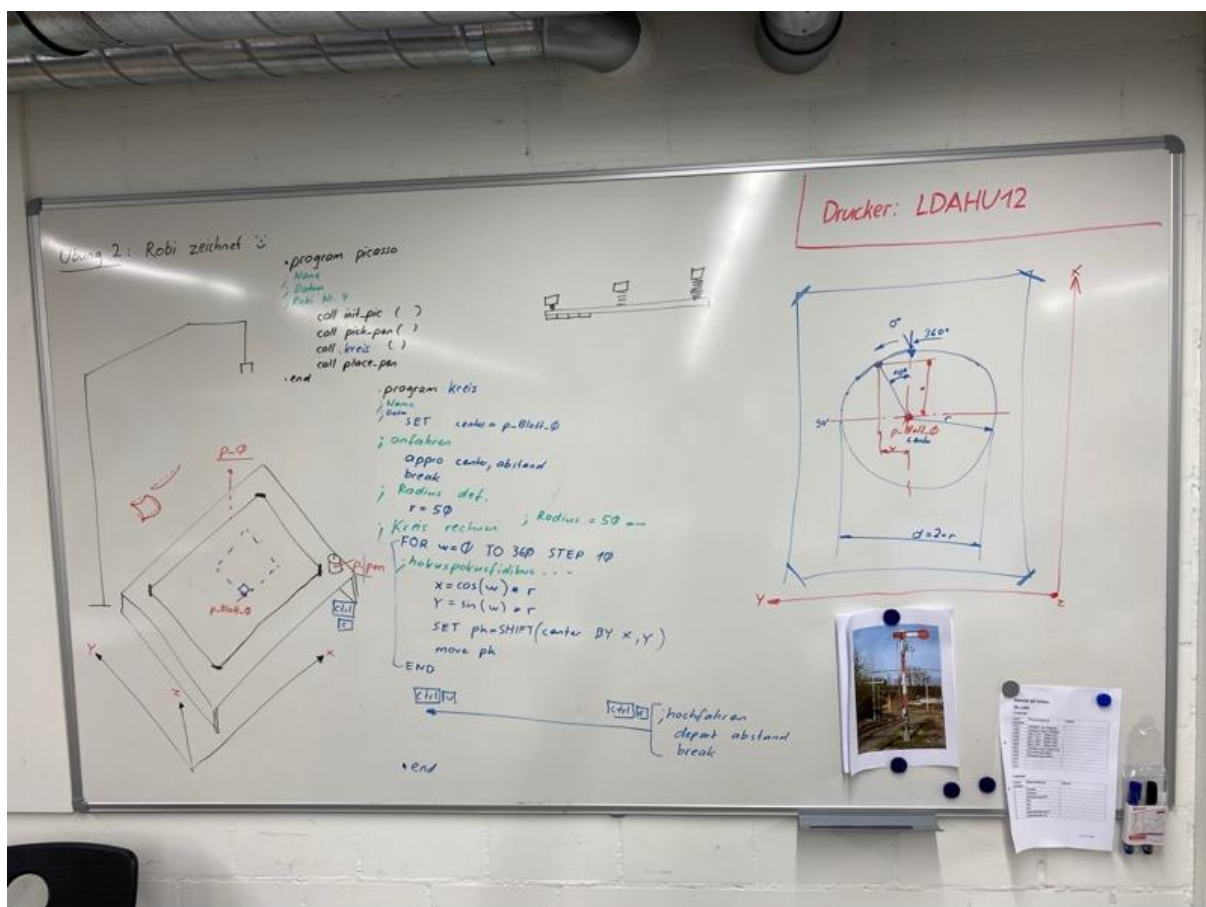 Übung 2: Robi zeichnet
.program picasso
; Name
; Datum
; Robi Nr. 4
call init_pic ( )
call pick_pen ( )
call kreis ( )
call place_pen
.end
.program kreis
; Name
; Datum
SET center = p_Blatt_Ø
; anfahren
appro center, abstand
break
; Radius def.
r = 5Ø
; Kreis rechnen ; Radius = 5Ø mm
FOR w=Ø TO 36Ø STEP 1Ø
; hokuspokusfidibus ...
x = cos(w) * r
Y = sin(w) * r
SET ph=SHIFT(center BY X,Y)
move ph
END
Ctrl V
Ctrl E
; hochfahren
depart abstand
break
.end
p_Ø
p_pen
Ctrl
E
p_Blatt_Ø
Y
z
x
Drucker: LDAHU12
X
0°
360°
10°
x
r
90°
p_Blatt_Ø
center
Y
d=2*r
Y
z